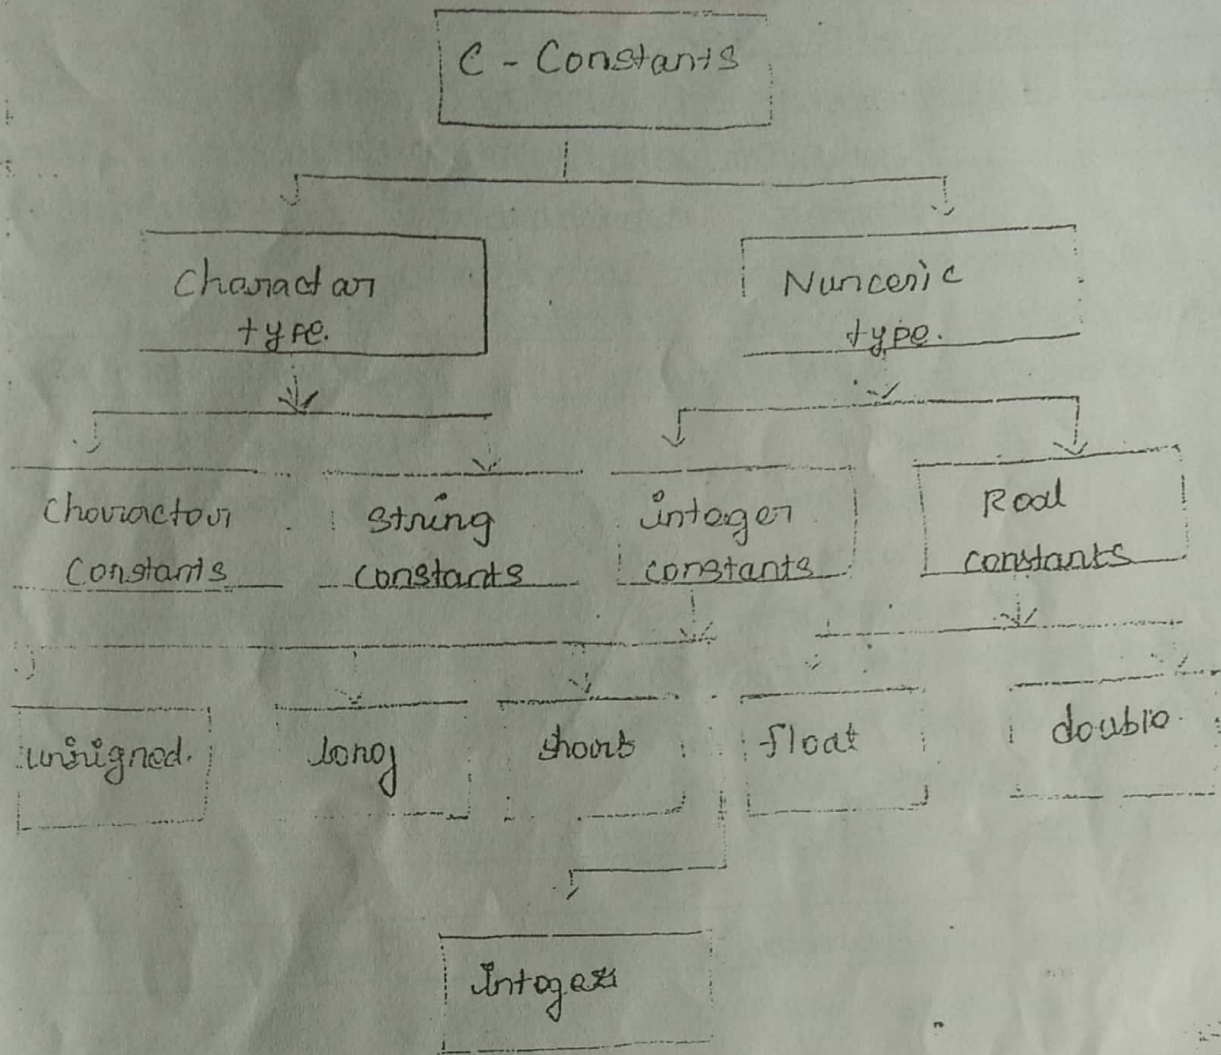 C - Constants
Charactar
type.
Numeric
type.
Charactor
Constants
string
constants
integer
constants
Real
constants
unsigned.
long
short
float
double.
Integer